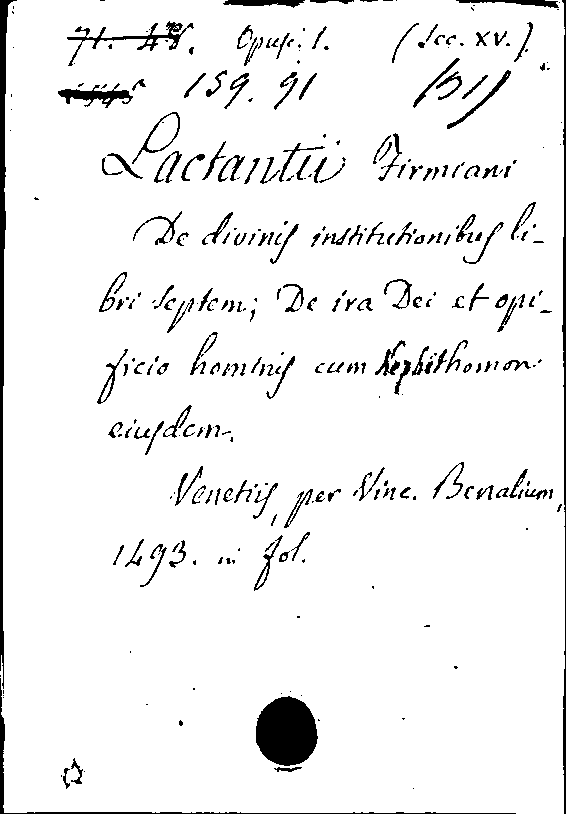 71. 4. Opusc. 1. (Sec. XV.)
159. 91 (51)
Lactantii Firmiani
De divinis institutionibus li-
bri septem; De ira Dei et opi-
ficio hominis cum Nephithomon
eiusdem.
Venetiis, per Vinc. Benalium,
1493. in fol.